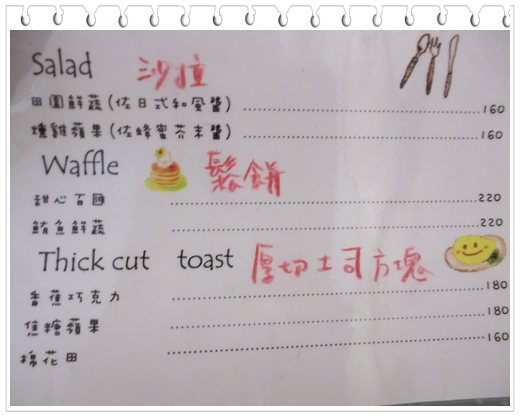 Salad 沙拉
田園鮮蔬(佐日式和風醬) 160
燻雞蘋果(佐蜂蜜芥末醬) 160
Waffle 鬆餅
甜心百匯 220
鮪魚鮮蔬 220
Thick cut toast 厚切土司方塊
香蕉巧克力 180
焦糖蘋果 180
棉花田 160